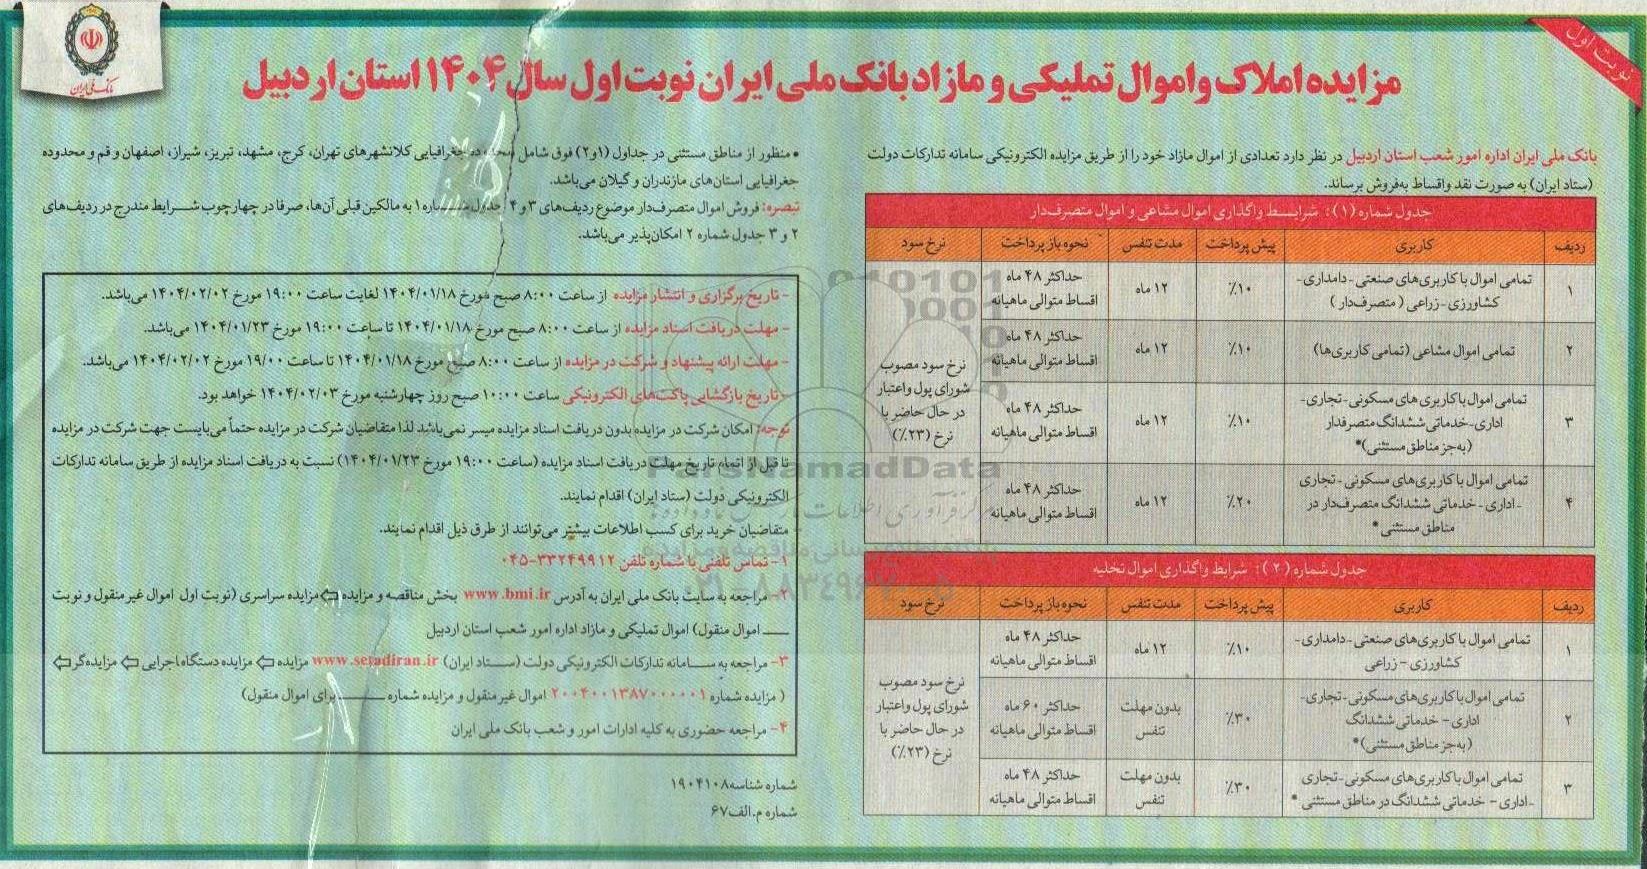 نوبت اول
بانک ملی ایران
مزایده املاک و اموال تملیکی و مازاد بانک ملی ایران نوبت اول سال ۱۴۰۴ استان اردبیل
بانک ملی ایران اداره امور شعب استان اردبیل در نظر دارد تعدادی از اموال مازاد خود را از طریق مزایده الکترونیکی سامانه تدارکات دولت
(ستاد ایران) به صورت نقد واقساط به‌فروش برساند.
جدول شماره (۱): شرایط واگذاری اموال مشاعی و اموال متصرف‌دار
ردیف کاربری پیش پرداخت مدت تنفس نحوه باز پرداخت نرخ سود
۱ تمامی اموال با کاربری‌های صنعتی - دامداری - ۱۰٪ ۱۲ ماه حداکثر ۴۸ ماه
کشاورزی - زراعی ( متصرف‌دار ) اقساط متوالی ماهیانه
۲ تمامی اموال مشاعی (تمامی کاربری‌ها) ۱۰٪ ۱۲ ماه حداکثر ۴۸ ماه
اقساط متوالی ماهیانه
نرخ سود مصوب
شورای پول واعتبار
در حال حاضر با
نرخ (۲۳٪)
۳ تمامی اموال با کاربری های مسکونی - تجاری - ۱۰٪ ۱۲ ماه حداکثر ۴۸ ماه
اداری - خدماتی ششدانگ متصرفدار اقساط متوالی ماهیانه
(به‌جز مناطق مستثنی)*
۴ تمامی اموال با کاربری‌های مسکونی - تجاری ۲۰٪ ۱۲ ماه حداکثر ۴۸ ماه
- اداری - خدماتی ششدانگ متصرف‌دار در اقساط متوالی ماهیانه
مناطق مستثنی *
جدول شماره (۲): شرایط واگذاری اموال تخلیه
ردیف کاربری پیش پرداخت مدت تنفس نحوه باز پرداخت نرخ سود
۱ تمامی اموال با کاربری‌های صنعتی - دامداری - ۱۰٪ ۱۲ ماه حداکثر ۴۸ ماه
کشاورزی - زراعی اقساط متوالی ماهیانه
نرخ سود مصوب
شورای پول واعتبار
در حال حاضر با
نرخ (۲۳٪)
۲ تمامی اموال با کاربری‌های مسکونی - تجاری - ۳۰٪ بدون مهلت تنفس حداکثر ۶۰ ماه
اداری - خدماتی ششدانگ اقساط متوالی ماهیانه
(به‌جز مناطق مستثنی)*
۳ تمامی اموال با کاربری‌های مسکونی - تجاری ۳۰٪ بدون مهلت تنفس حداکثر ۴۸ ماه
- اداری - خدماتی ششدانگ در مناطق مستثنی * اقساط متوالی ماهیانه
• منظور از مناطق مستثنی در جداول (۱و۲) فوق شامل محدوده جغرافیایی کلانشهرهای تهران، کرج، مشهد، تبریز، شیراز، اصفهان و قم و محدوده
جغرافیایی استان‌های مازندران و گیلان می‌باشد.
تبصره: فروش اموال متصرف‌دار موضوع ردیف‌های ۳ و ۴ جدول شماره ۱ به مالکین قبلی آن‌ها، صرفا در چهارچوب شرایط مندرج در ردیف‌های
۲ و ۳ جدول شماره ۲ امکان‌پذیر می‌باشد.
- تاریخ برگزاری و انتشار مزایده از ساعت ۸:۰۰ صبح مورخ ۱۴۰۴/۰۱/۱۸ لغایت ساعت ۱۹:۰۰ مورخ ۱۴۰۴/۰۲/۰۲ می‌باشد.
- مهلت دریافت اسناد مزایده از ساعت ۸:۰۰ صبح مورخ ۱۴۰۴/۰۱/۱۸ تا ساعت ۱۹:۰۰ مورخ ۱۴۰۴/۰۱/۲۳ می‌باشد.
- مهلت ارائه پیشنهاد و شرکت در مزایده از ساعت ۸:۰۰ صبح مورخ ۱۴۰۴/۰۱/۱۸ تا ساعت ۱۹/۰۰ مورخ ۱۴۰۴/۰۲/۰۲ می‌باشد.
- تاریخ بازگشایی پاکت‌های الکترونیکی ساعت ۱۰:۰۰ صبح روز چهارشنبه مورخ ۱۴۰۴/۰۲/۰۳ خواهد بود.
توجه: امکان شرکت در مزایده بدون دریافت اسناد مزایده میسر نمی‌باشد لذا متقاضیان شرکت در مزایده حتماً می‌بایست جهت شرکت در مزایده
تا قبل از اتمام تاریخ مهلت دریافت اسناد مزایده (ساعت ۱۹:۰۰ مورخ ۱۴۰۴/۰۱/۲۳) نسبت به دریافت اسناد مزایده از طریق سامانه تدارکات
الکترونیکی دولت (ستاد ایران) اقدام نمایند.
متقاضیان خرید برای کسب اطلاعات بیشتر می‌توانند از طرق ذیل اقدام نمایند.
۱- تماس تلفنی با شماره تلفن ۳۳۲۴۹۹۱۲-۰۴۵
۲- مراجعه به سایت بانک ملی ایران به آدرس www.bmi.ir بخش مناقصه و مزایده ⇦ مزایده سراسری (نوبت اول اموال غیر منقول و نوبت
ــــ اموال منقول) اموال تملیکی و مازاد اداره امور شعب استان اردبیل
۳- مراجعه به سامانه تدارکات الکترونیکی دولت (ستاد ایران) www.setadiran.ir مزایده ⇦ مزایده دستگاه اجرایی ⇦ مزایده‌گر ⇦
( مزایده شماره ۲۰۰۴۰۰۱۳۸۷۰۰۰۰۰۱ اموال غیر منقول و مزایده شماره ــــــــ برای اموال منقول)
۴- مراجعه حضوری به کلیه ادارات امور و شعب بانک ملی ایران
شماره شناسه ۱۹۰۴۱۰۸
شماره م.الف ۶۷
ParsNamadData